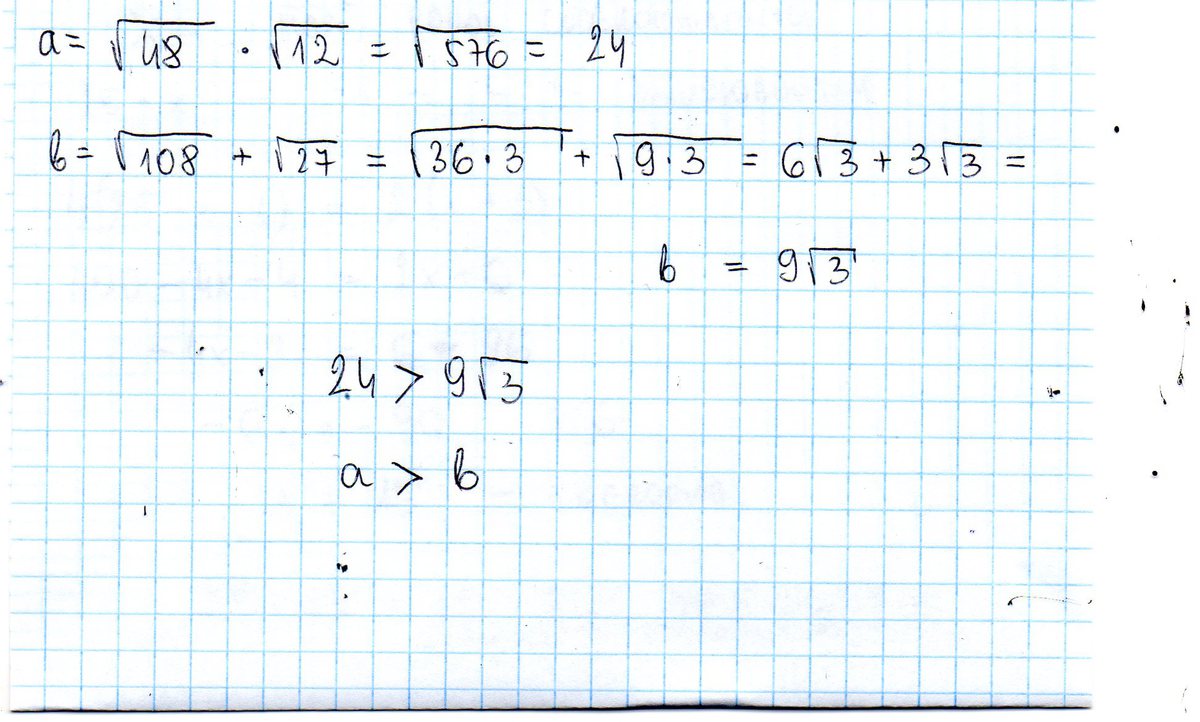 a = √48 · √12 = √576 = 24
b = √108 + √27 = √36·3 + √9·3 = 6√3 + 3√3 =
b = 9√3
24 > 9√3
a > b